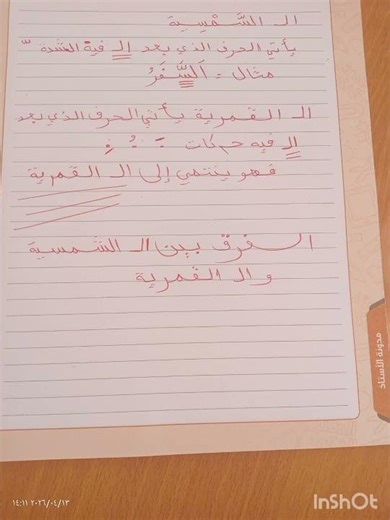 الـ الشَّمْسِية
يأتي الحرف الذي بعد الـ فيه الشدة ّ
مثال = اَلسَّفَرُ
الـ القمرية يأتي الحرف الذي بعد
الـ فيه حركات َ ُ ِ
فهو ينتمي إلى الـ القمرية
الفرق بين الـ الشمسية
و الـ القمرية
مدونة الأستاذ
١٤:١١ ٢٠٢٦/٠٤/١٣
InShOt